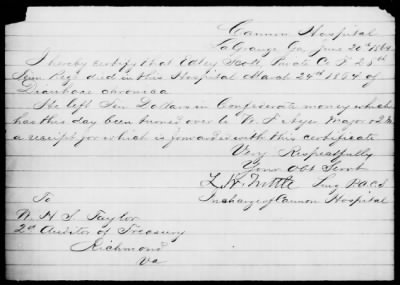 Cannon Hospital
La Grange Ga, June 20th 1864
I hereby certify that Edley Scott, Private Co F 28th
Tenn Regt died in this Hospital March 24th 1864 of
Diarrhoea chronica
He left Ten Dollars in Confederate money which
has this day been turned over to W. F. Ayer Major & Q M
a receipt for which is forwarded with this certificate
Very Respectfully
Your Obt Servt
L. H. Surg P.A.C.S
In charge of Cannon Hospital
To
W. H. S. Taylor
2d Auditor of Treasury
Richmond
Va